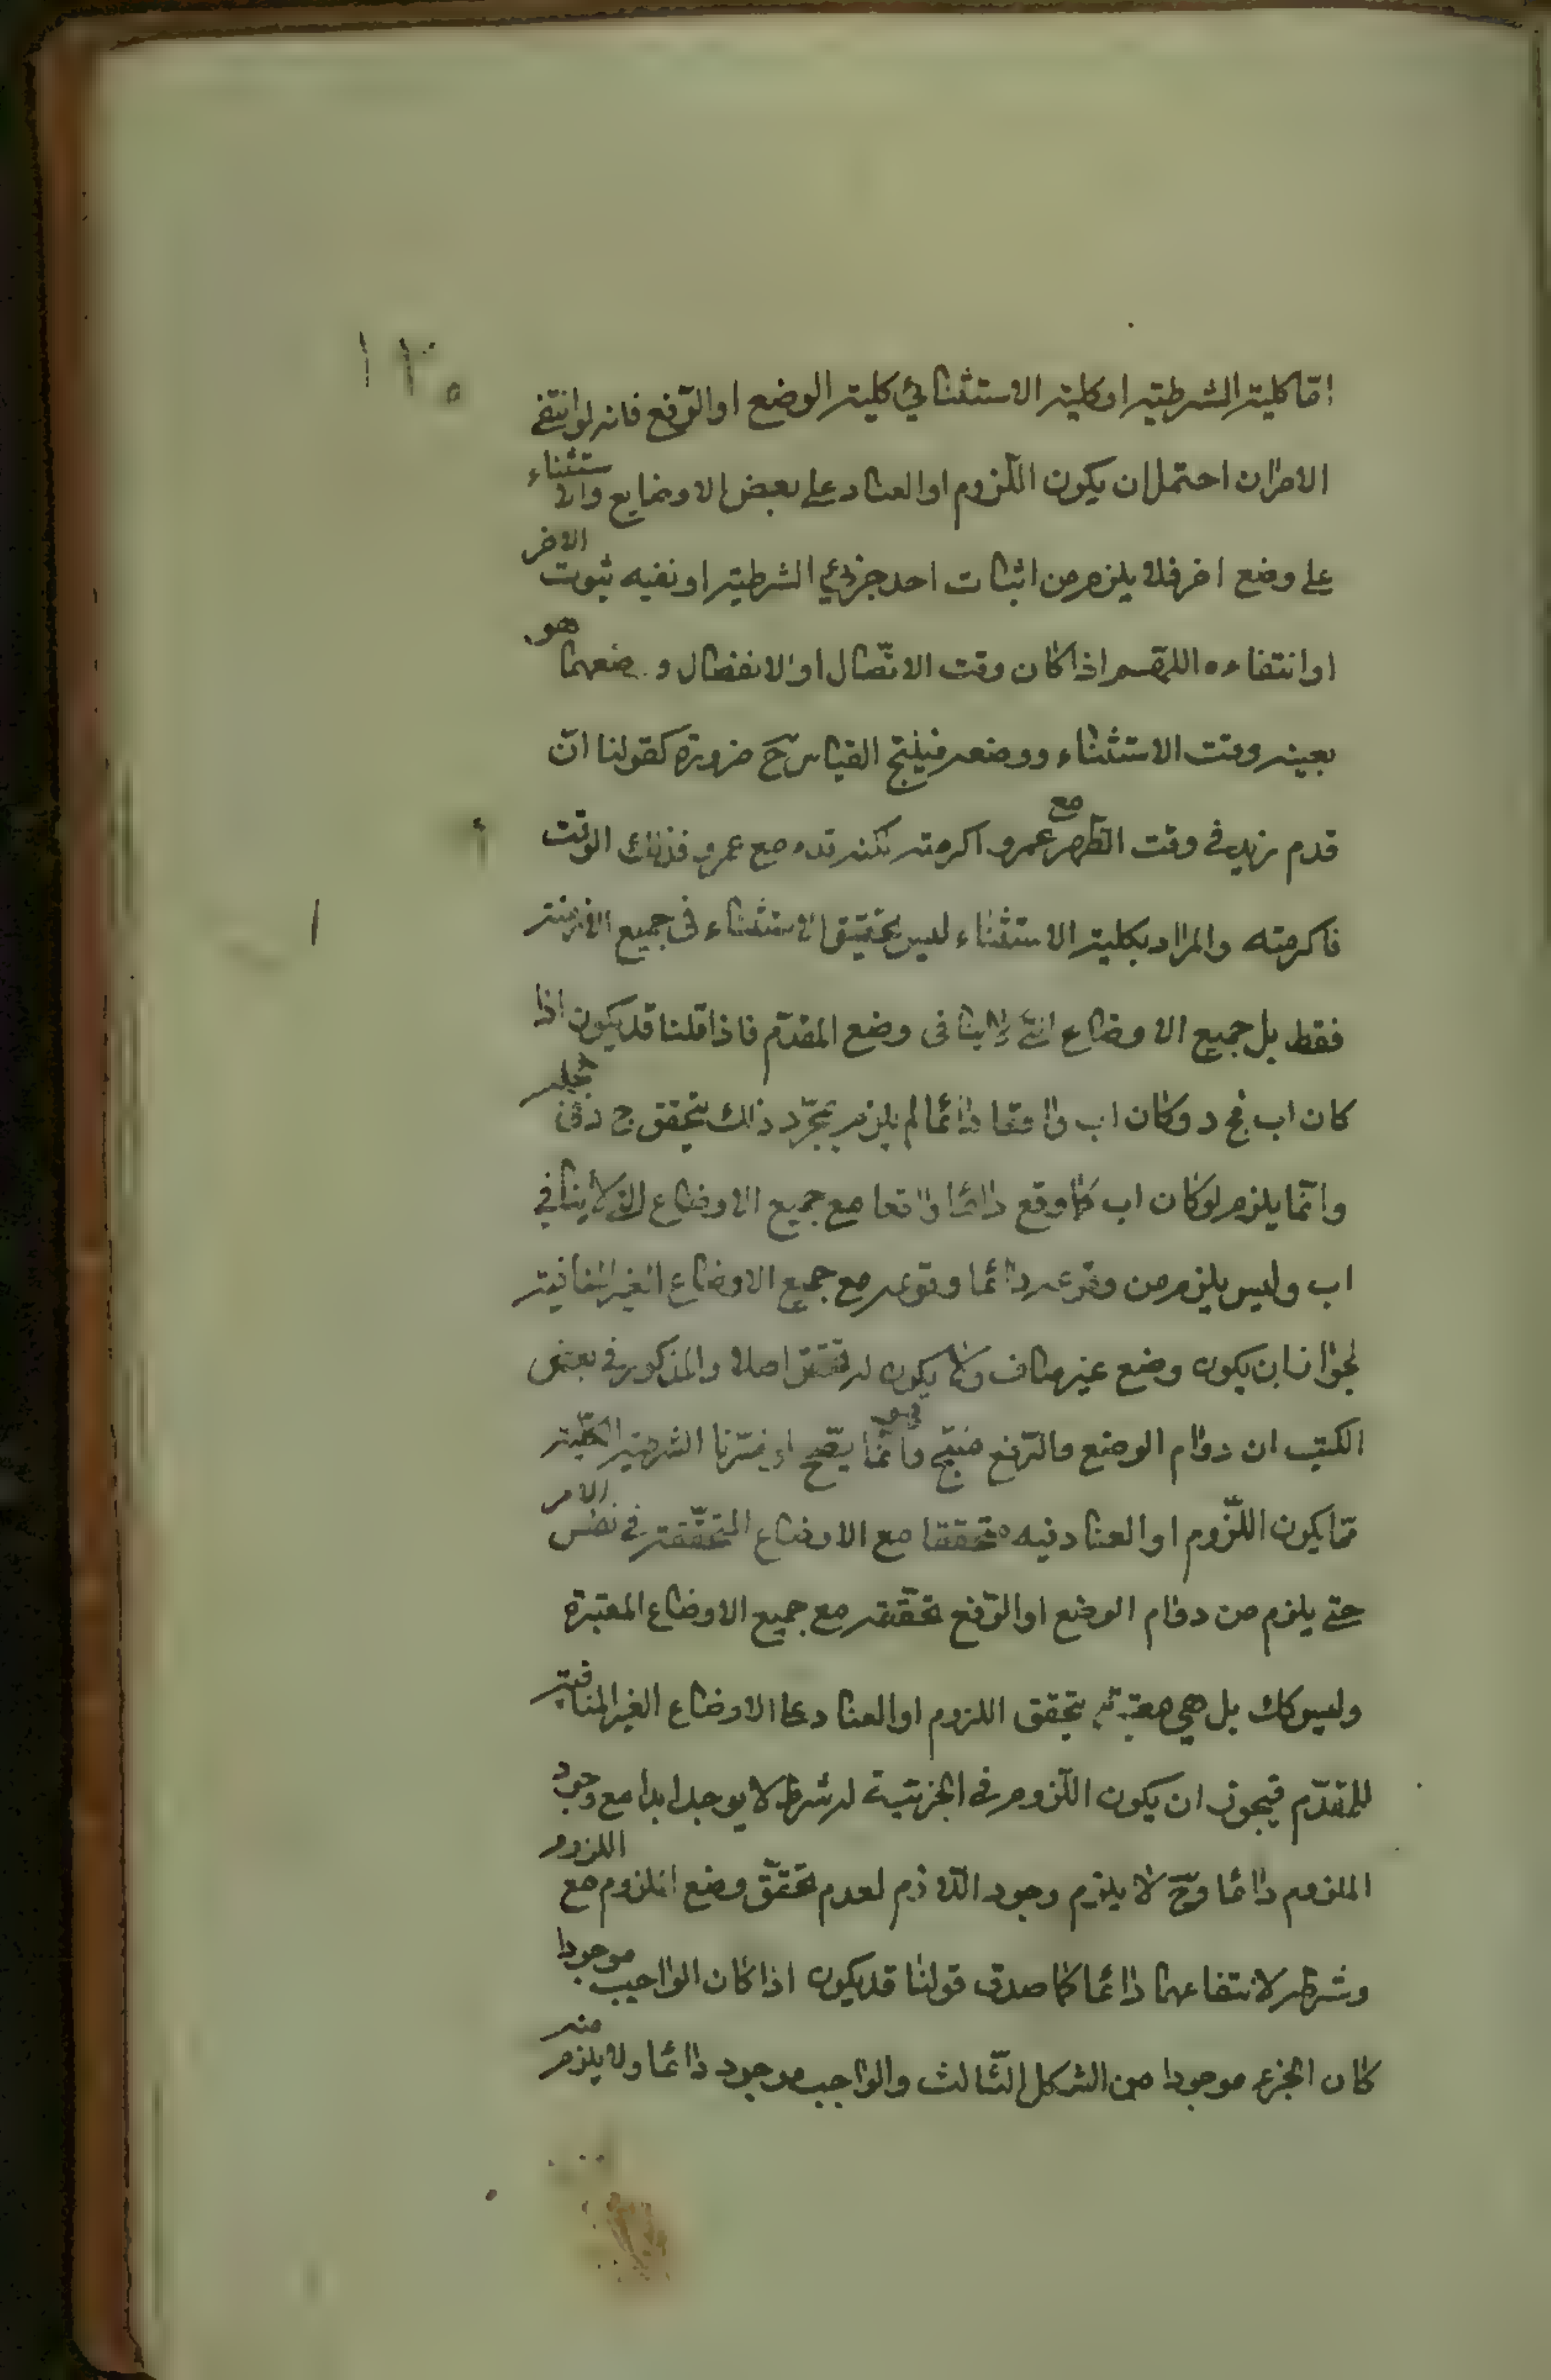 ١٢٥
امّا كلية الشرطية او كلية الاستثنائي كلية الوضع او الرّفع فانه لو انتفى
الامران احتمل ان يكون اللّزوم او العناد على بعض الاوضاع والاستثناء
على وضع اخر فلا يلزم من اثبات احد جزئي الشرطية او نفيه ثبوت الاخر
او انتفاءه اللهم الا اذا كان وقت الاتّصال او الانفصال و وضعهما هو
بعينه وقت الاستثناء ووضعه فينتج القياس ح ضرورة كقولنا ان
قدم زيد في وقت الظهر مع عمرو اكرمته لكنه قدم مع عمرو فذلك الوقت
فاكرمته والمراد بكلية الاستثناء ليس تحقيق الاستثناء فى جميع الازمنة
فقط بل جميع الاوضاع التي لا ينافى وضع المقدّم فاذا قلنا قد يكون اذا
كان اب فج د وكان اب واقعا دائما لم يلزم بمجرّد ذلك تحقق ج د في الجملة
وانّما يلزم لو كان اب كما وقع دائما واقعا مع جميع الاوضاع التي لا ينافي
اب وليس يلزم من وقوعه دائما وقوعه مع جميع الاوضاع الغير المنافية
لجواز ان يكون وضع غير مناف ولا يكون له تحقق اصلا والمذكور في بعض
الكتب ان دوام الوضع والرّفع منتج وانّما يصّح لو فسّرنا الشرطية الكلّية
بما يكون اللّزوم او العناد فيه متحققا مع الاوضاع المتحقّقة في نفس الامر
حتى يلزم من دوام الوضع او الرّفع تحقّقه مع جميع الاوضاع المعتبرة
وليس كك بل هي معتبرة بتحقق اللزوم او العناد على الاوضاع الغير المنافية
للمقدّم فيجوز ان يكون اللّزوم في الجزئية له شرط لا يوجد ابدا مع وجود
الملزوم دائما وح لا يلزم وجود اللّازم لعدم تحقّق وضع الملزوم مع اللزوم
وشرطه لانتفاعهما دائما كما صدق قولنا قد يكون اذا كان الواجب موجودا
كان الجزء موجودا من الشكل الثّالث والواجب موجود دائما ولا يلزم منه